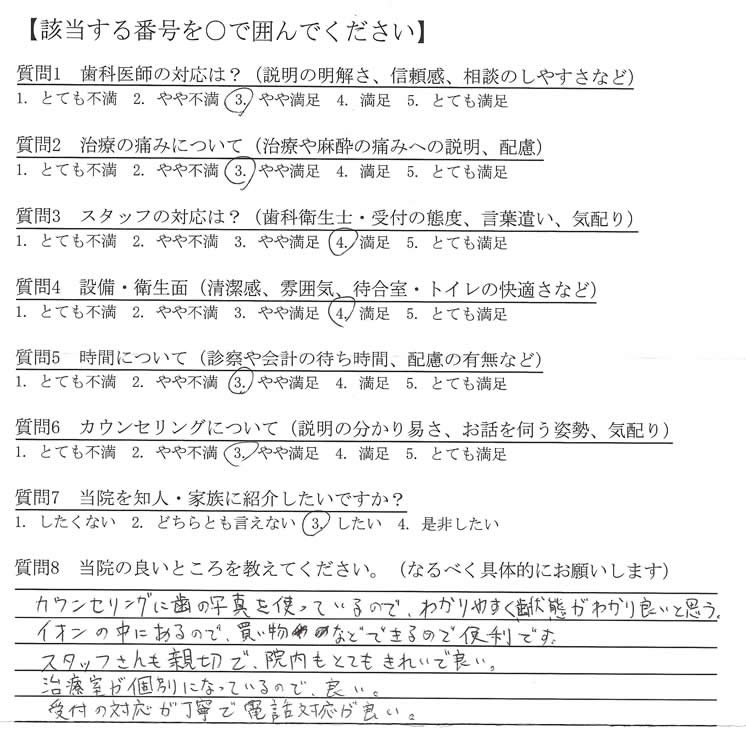 【該当する番号を〇で囲んでください】
質問1　歯科医師の対応は？（説明の明解さ、信頼感、相談のしやすさなど）
1. とても不満　2. やや不満　3. やや満足　4. 満足　5. とても満足
質問2　治療の痛みについて（治療や麻酔の痛みへの説明、配慮）
1. とても不満　2. やや不満　3. やや満足　4. 満足　5. とても満足
質問3　スタッフの対応は？（歯科衛生士・受付の態度、言葉遣い、気配り）
1. とても不満　2. やや不満　3. やや満足　4. 満足　5. とても満足
質問4　設備・衛生面（清潔感、雰囲気、待合室・トイレの快適さなど）
1. とても不満　2. やや不満　3. やや満足　4. 満足　5. とても満足
質問5　時間について（診察や会計の待ち時間、配慮の有無など）
1. とても不満　2. やや不満　3. やや満足　4. 満足　5. とても満足
質問6　カウンセリングについて（説明の分かり易さ、お話を伺う姿勢、気配り）
1. とても不満　2. やや不満　3. やや満足　4. 満足　5. とても満足
質問7　当院を知人・家族に紹介したいですか？
1. したくない　2. どちらとも言えない　3. したい　4. 是非したい
質問8　当院の良いところを教えてください。（なるべく具体的にお願いします）
カウンセリングに歯の写真を使っているので、わかりやすく歯状態がわかり良いと思う。
イオンの中にあるので、買い物などできるので便利です。
スタッフさんも親切で、院内もとてもきれいで良い。
治療室が個別になっているので、良い。
受付の対応が丁寧で電話対応が良い。